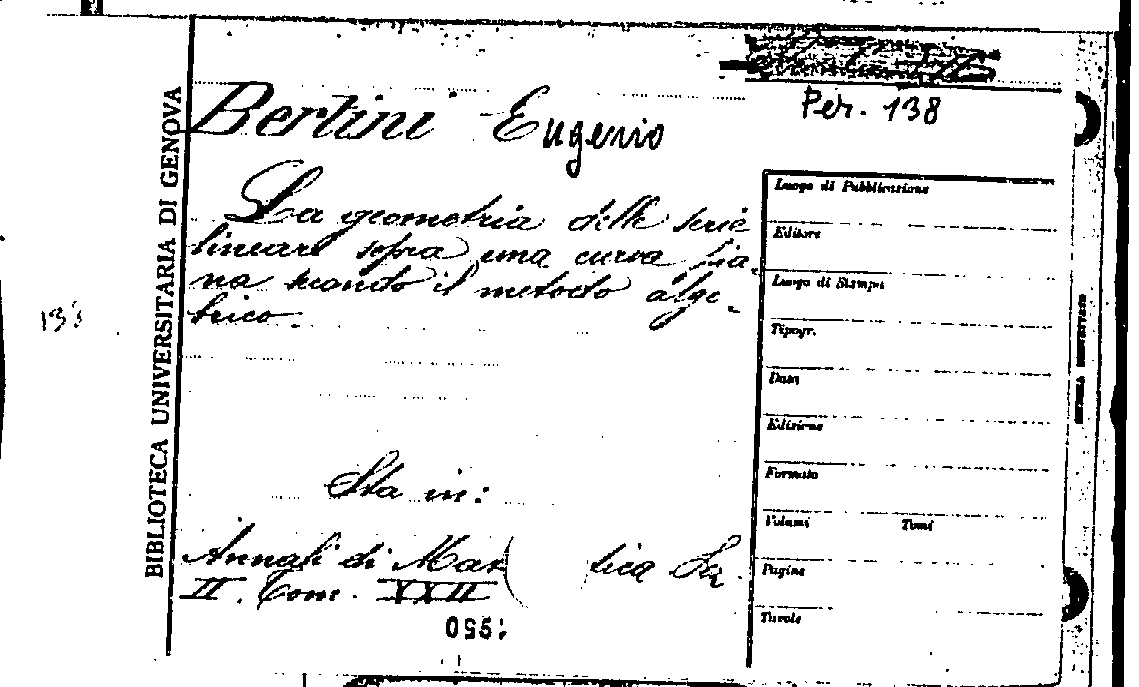 Per. 138
Bertini Eugenio
La geometria delle serie
lineari sopra una curva pia-
na secondo il metodo alge-
brico.
Sta in:
Annali di Mat tica Se
II. Tom. XXII
1950
BIBLIOTECA UNIVERSITARIA DI GENOVA
Luogo di Pubblicazione
Editore
Luogo di Stampa
Tipogr.
Data
Edizione
Formato
Volumi Tomi
Pagine
Tavole